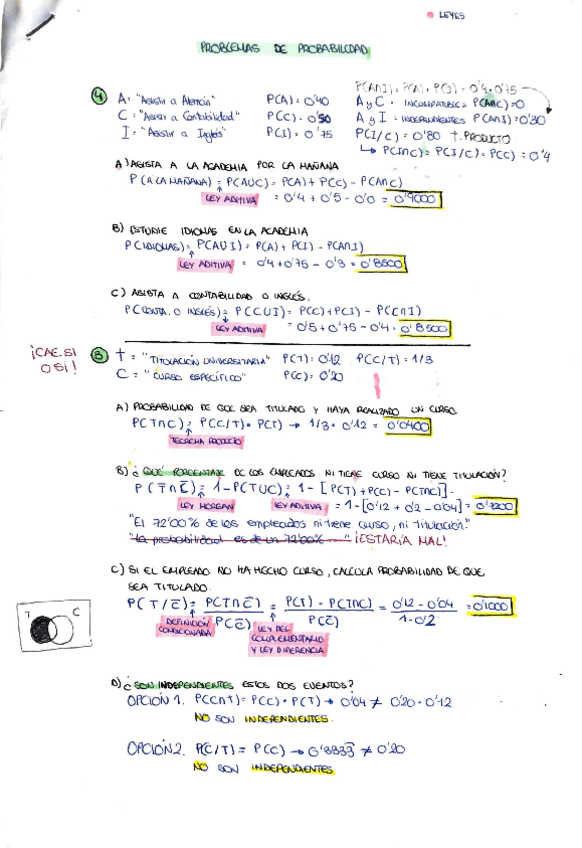 LEYES
PROBLEMAS DE PROBABILIDAD
4 A = "Asistir a Alemán" P(A) = 0'40
C = "Asistir a Contabilidad" P(C) = 0'50
I = "Asistir a Inglés" P(I) = 0'75
P(A∩I) = P(A) · P(I) = 0'4 · 0'75
A y C = INCOMPATIBLES P(A∩C) = 0
A y I = INDEPENDIENTES P(A∩I) = 0'30
P(I/C) = 0'80 T. PRODUCTO
↳ P(I∩C) = P(I/C) · P(C) = 0'4
A) ASISTA A LA ACADEMIA POR LA MAÑANA
P(A LA MAÑANA) = P(A∪C) = P(A) + P(C) - P(A∩C)
LEY ADITIVA = 0'4 + 0'5 - 0'0 = 0'9000
B) ESTUDIE IDIOMAS EN LA ACADEMIA
P(IDIOMAS) = P(A∪I) = P(A) + P(I) - P(A∩I)
LEY ADITIVA = 0'4 + 0'75 - 0'3 = 0'8500
C) ASISTA A CONTABILIDAD O INGLÉS.
P(CONTA. O INGLÉS) = P(C∪I) = P(C) + P(I) - P(C∩I)
LEY ADITIVA = 0'5 + 0'75 - 0'4 = 0'8500
¡CAE SI
O SI!
T = "TITULACIÓN UNIVERSITARIA" P(T) = 0'12 P(C/T) = 1/3
C = "CURSO ESPECÍFICO" P(C) = 0'20
A) PROBABILIDAD DE QUE SEA TITULADO Y HAYA REALIZADO UN CURSO
P(T∩C) = P(C/T) · P(T) → 1/3 · 0'12 = 0'0400
TEOREMA PRODUCTO
B) ¿QUÉ PORCENTAJE DE LOS EMPLEADOS NI TIENE CURSO NI TIENE TITULACIÓN?
P(T̄∩C̄) = 1 - P(T∪C) = 1 - [P(T) + P(C) - P(T∩C)] =
LEY MORGAN LEY ADITIVA = 1 - [0'12 + 0'2 - 0'04] = 0'7200
"El 72'00% de los empleados ni tiene curso, ni titulación."
"La probabilidad es de un 72'00% ..." ¡ESTARÍA MAL!
C) SI EL EMPLEADO NO HA HECHO CURSO, CALCULA PROBABILIDAD DE QUE
SEA TITULADO.
P(T/C̄) = P(T∩C̄) / P(C̄) = P(T) - P(T∩C) / P(C̄) = 0'12 - 0'04 / 1 - 0'2 = 0'1000
DEFINICIÓN
CONDICIONADA
LEY DEL
COMPLEMENTARIO
Y LEY DIFERENCIA
T C
D) ¿SON INDEPENDIENTES ESTOS DOS EVENTOS?
OPCIÓN 1. P(C∩T) = P(C) · P(T) → 0'04 ≠ 0'20 · 0'12
NO SON INDEPENDIENTES.
OPCIÓN 2. P(C/T) = P(C) → 0'3333 ≠ 0'20
NO SON INDEPENDIENTES